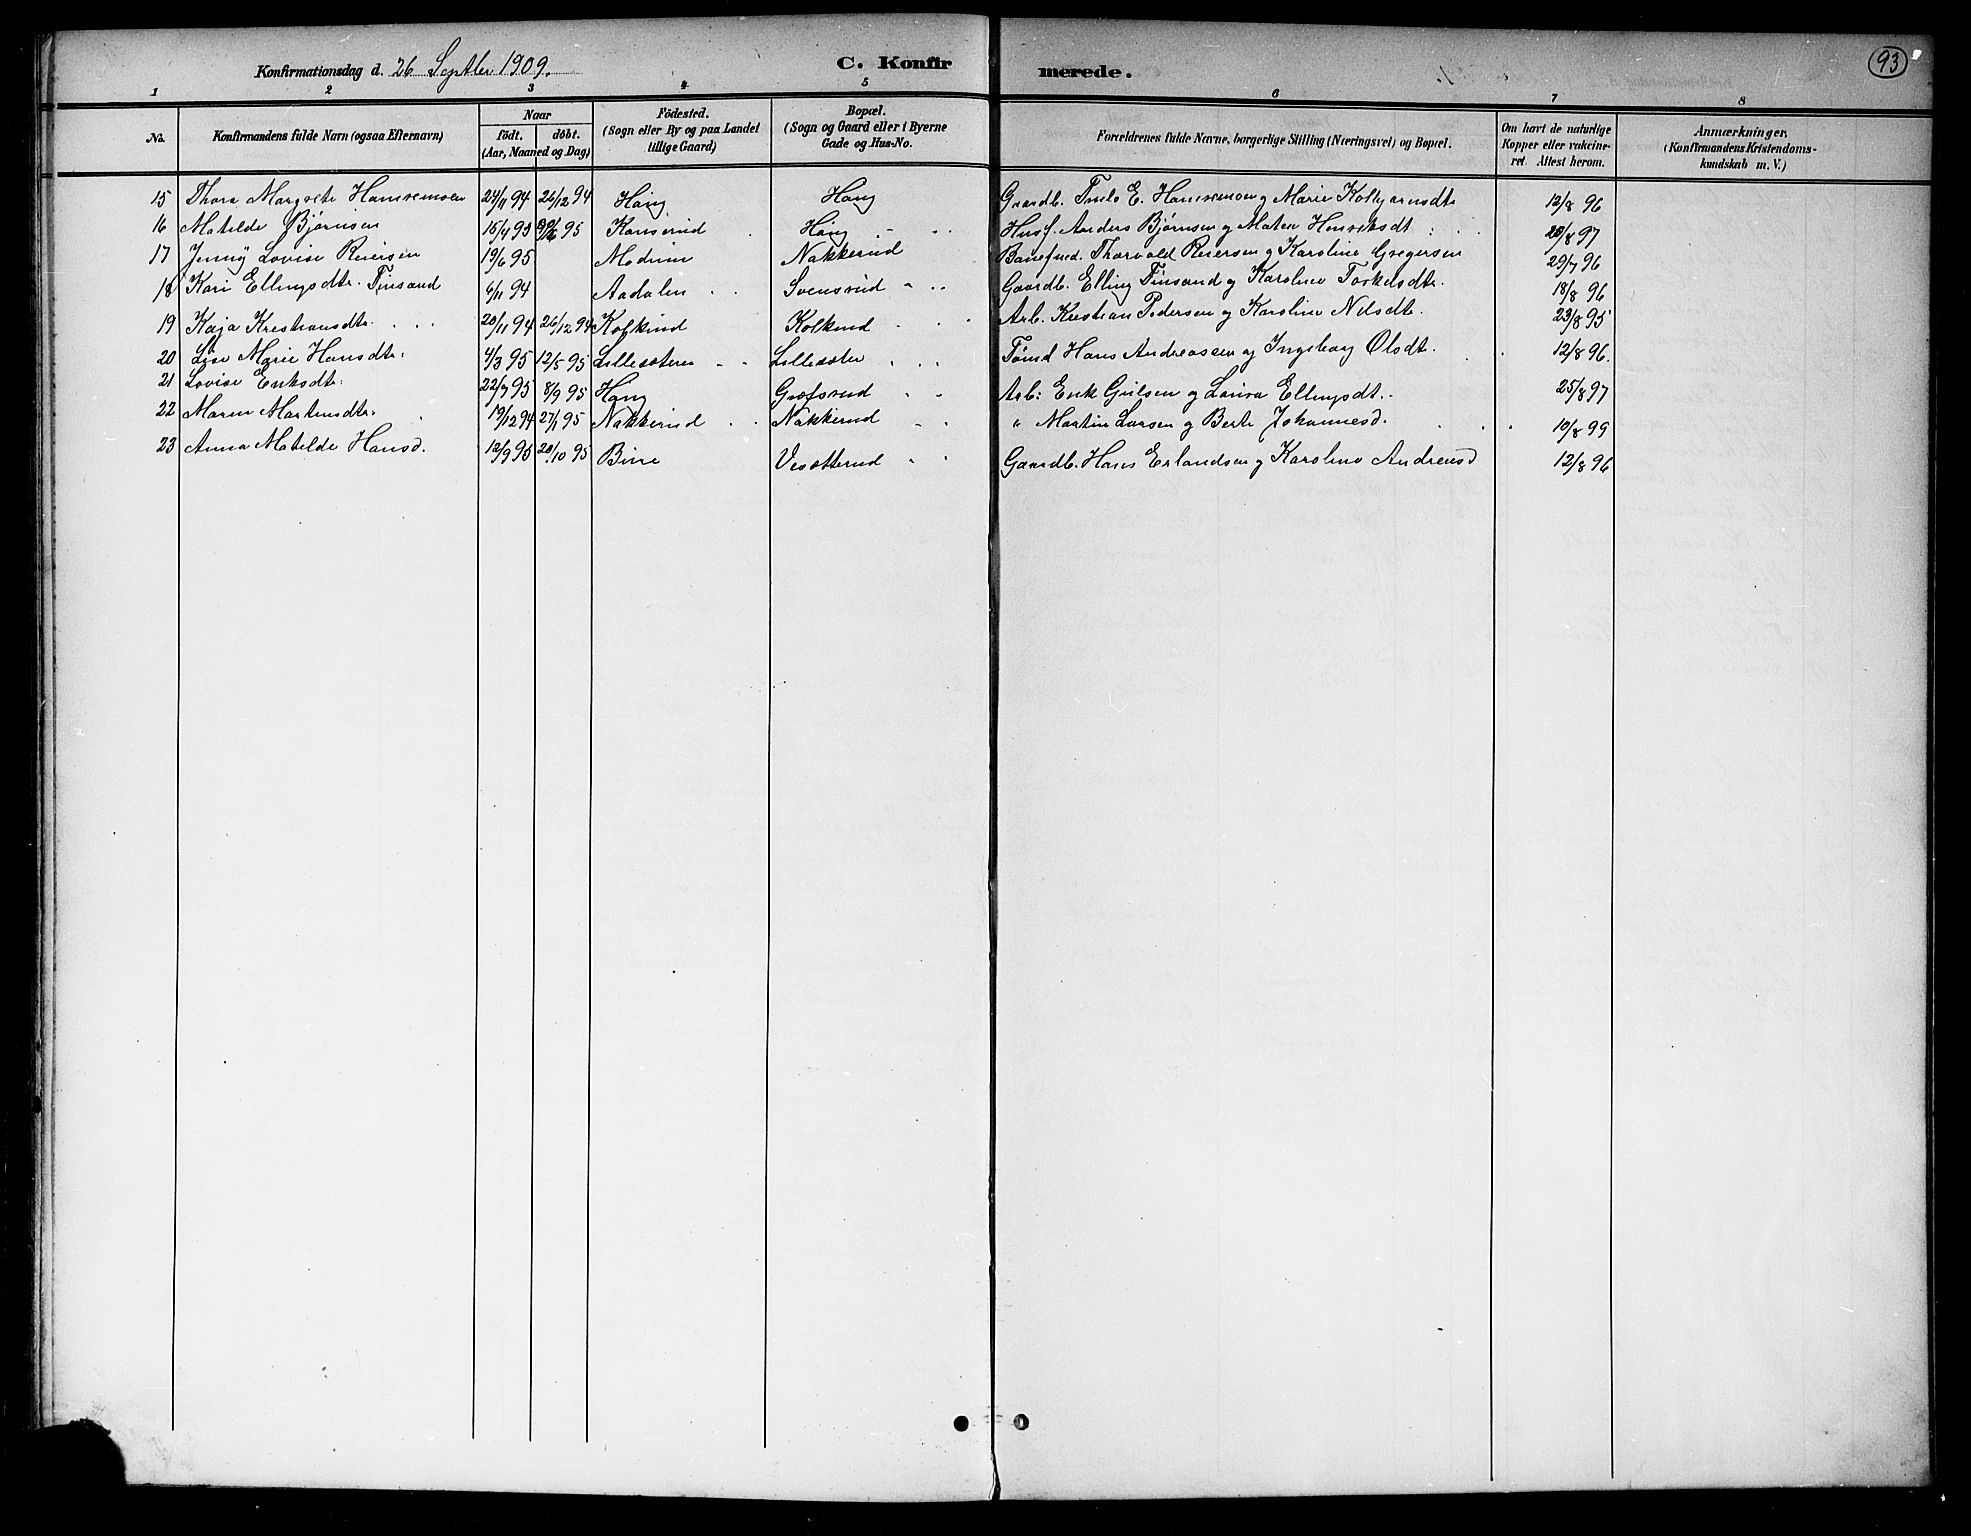 Konfirmationsdag d. 26 Septbr 1909. C. Konfirmerede. 93
1 2 3 4 5 6 7 8
No. Konfirmandens fulde Navn (ogsaa Efternavn) Naar født. døbt. (Aar, Maaned og Dag) Fødested. (Sogn eller By og paa Landet tillige Gaard) Bopæl. (Sogn og Gaard eller i Byerne Gade og Hus-No. Forældrenes fulde Navne, borgerlige Stilling (Næringsvei) og Bopæl. Om havt de naturlige Kopper eller vakcineret. Attest herom. Anmærkninger. (Konfirmandens Kristendomskundskab m. V.)
15 Thora Margrete Hamremoen 24/11 94 26/12 94 Haug Haug Gaardb. Truls E. Hamremoen og Marie Kolbjørnsdtr 12/8 96
16 Matilde Bjørnsen 15/4 95 95 Kanserud Haug Husf. Anders Bjørnsen og Maten Henriksdt 20/8 97
17 Jenny Lovise Reiersen 19/6 95 Modum Nakkerud Banefmd. Thorvald Reiersen og Karoline Gregersen 29/7 96
18 Kari Ellingsdtr. Finsand 6/11 94 Aadalen Svensrud Gaardb. Elling Finsand og Karoline Torkelsdtr. 18/8 96
19 Kaja Kristiansdtr. 20/11 94 26/12 94 Kolkind Kolkind Arb. Kristian Pedersen og Karoline Nilsdt. 23/8 95
20 Lise Marie Hansdtr: 4/3 95 12/5 95 Lillesæteren Lillesæter Tømd Hans Andreassen og Ingeborg Olsdt. 12/8 96.
21 Lovise Eriksdtr: 22/7 95 8/9 95 Haug Græfsrud Arb: Erik Gulsen og Laura Ellingsdt. 25/8 97
22 Maren Martinsdtr. 19/12 94 27/1 95 Nakkerud Nakkerud " Martin Larsen og Berte Johannesd. 10/8 99
23 Anna Matilde Hansd. 12/9 95 20/10 95 Bure Vesætterud Gaardb. Hans Erlandsen og Karoline Andreasd 12/8 96